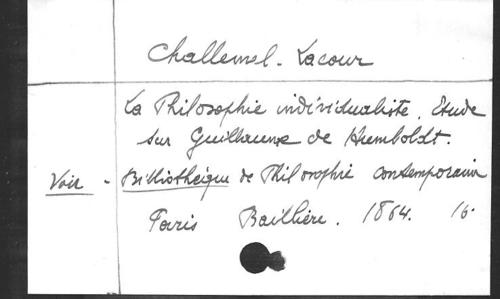 Challemel-Lacour
La Philosophie individualiste. Etude
sur Guillaume de Humboldt.
Voir - Bibliothèque de Philosophie contemporaine
Paris Baillière. 1864. 16.